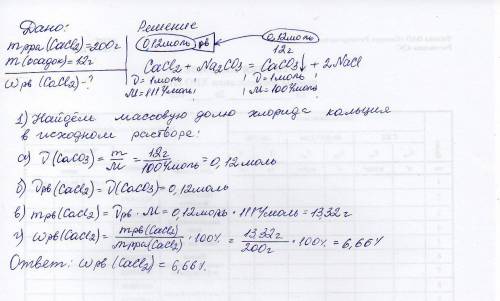 Дано:
Решение
m р-ра (CaCl₂)=200г
m (осадок)=12г
ω рв (CaCl₂)-?
0,12моль рв
0,12моль
12г
CaCl₂ + Na₂CO₃ = CaCO₃↓ + 2NaCl
ν=1моль
ν=1моль
M=111г/моль
M=100г/моль
1) Найдём массовую долю хлорида кальция
в исходном растворе:
а) ν(CaCO₃) = m/M = 12г/100г/моль = 0,12моль
б) ν рв (CaCl₂) = ν(CaCO₃) = 0,12моль
в) m рв (CaCl₂) = ν рв · M = 0,12моль · 111г/моль = 13,32г
г) ω рв (CaCl₂) = m рв (CaCl₂)/m р-ра (CaCl₂) · 100% = 13,32г/200г · 100% = 6,66%
Ответ: ω рв (CaCl₂) = 6,66%.